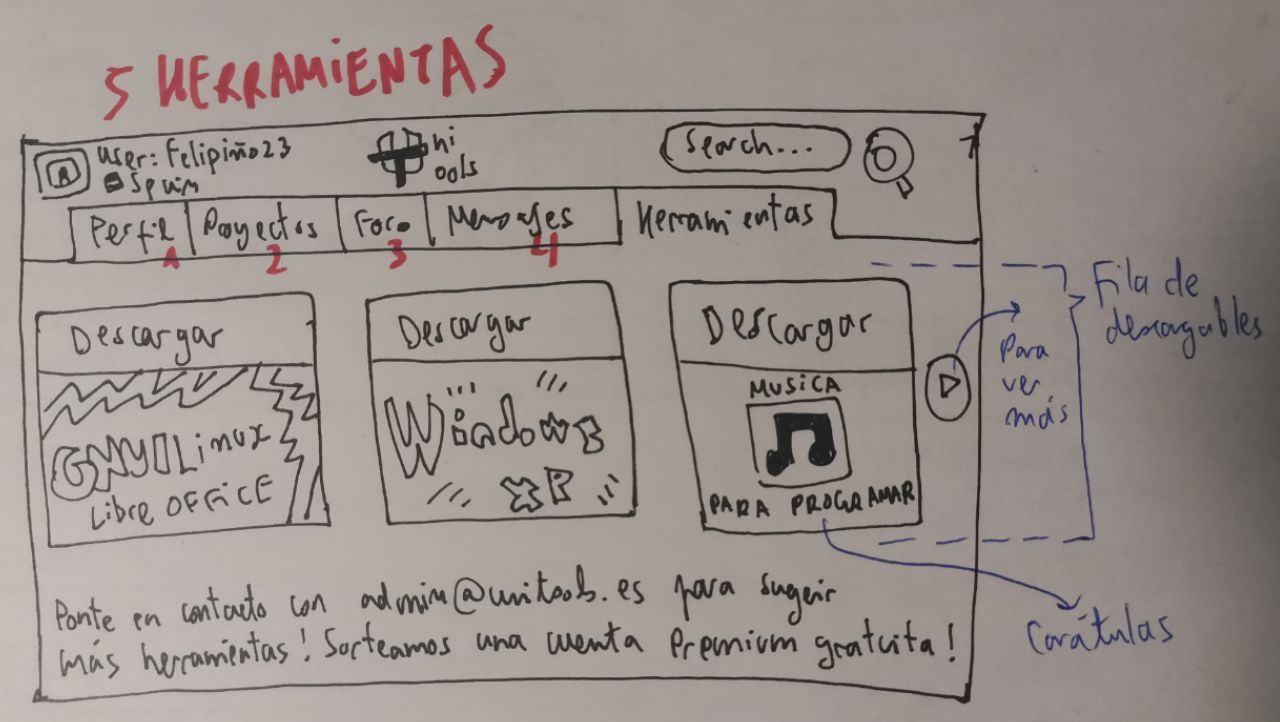 5 HERRAMiENTAS
user: Felipiño23
Spain
Uni
Tools
Search...
Perfil Proyectos Foro Mensajes Herramientas
1 2 3 4
Descargar Descargar Descargar
GNU Linux
Libre OFFiCE
Windows
XP
MUSiCA
PARA PROGRAMAR
Para
ver
más
Fila de
descargables
Carátulas
Ponte en contacto con admin@unitools.es para sugerir
más herramientas! Sorteamos una cuenta Premium gratuita!